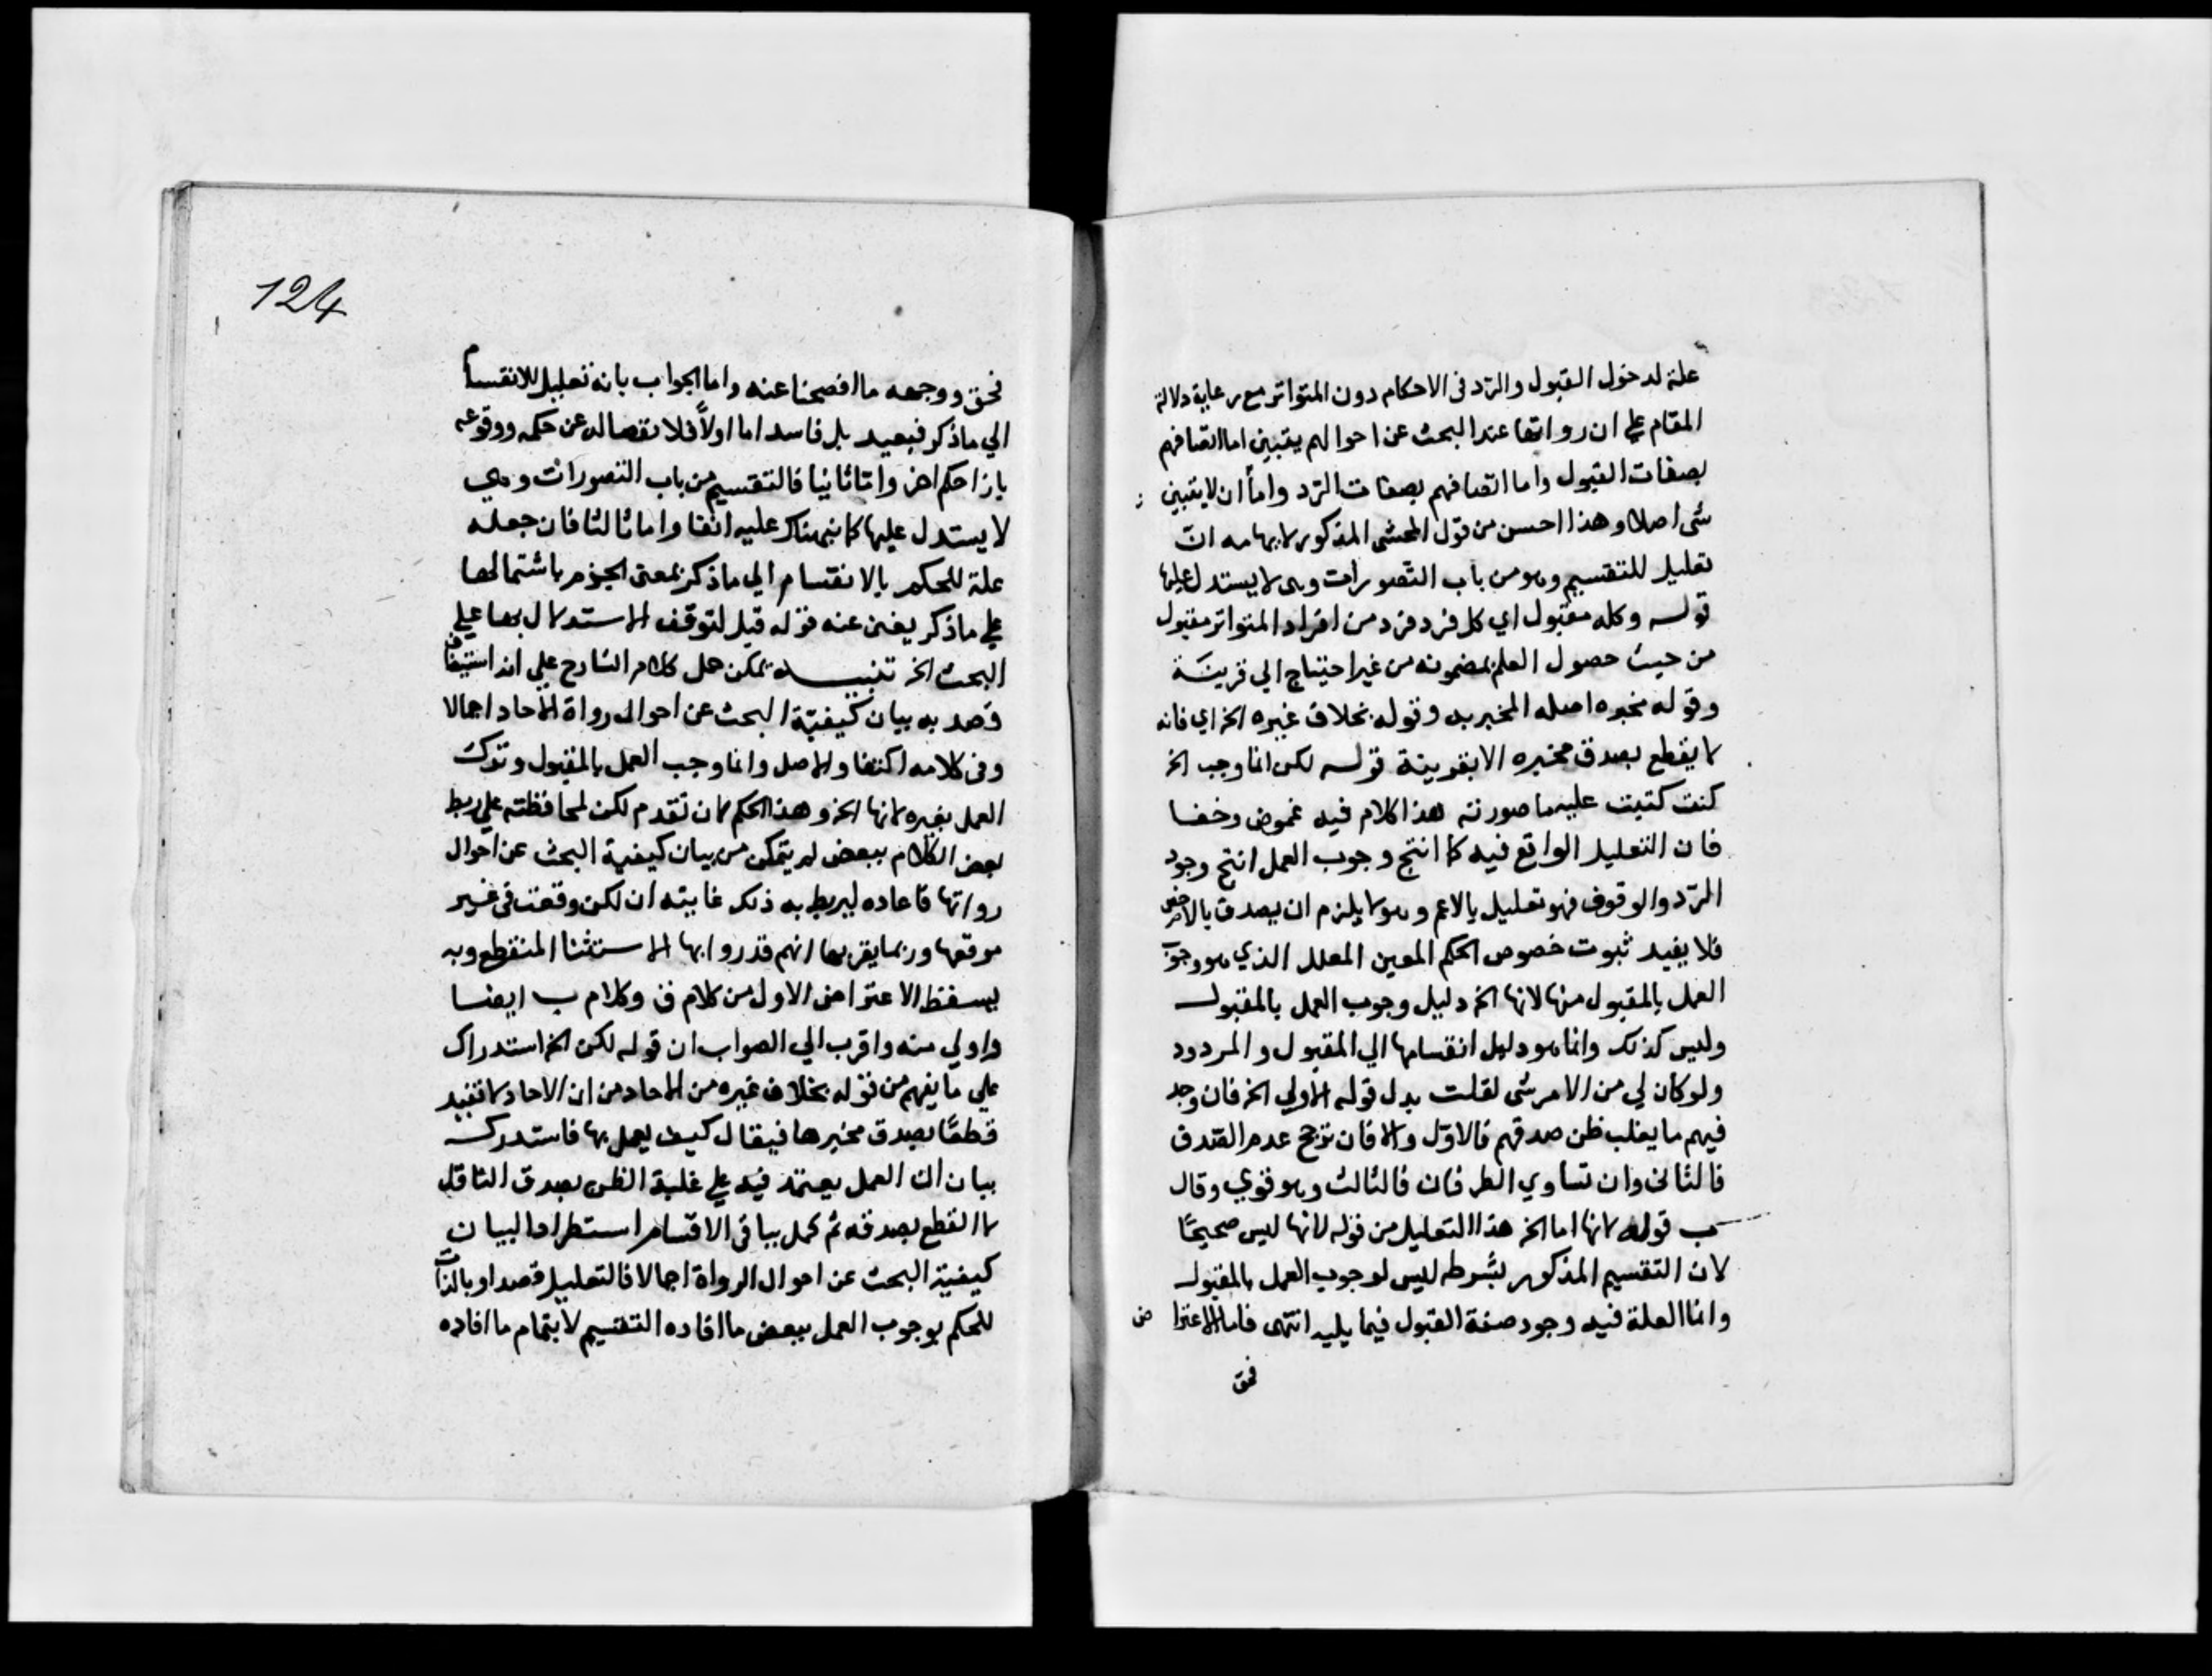 علة لدخول القبول والرّد فى الاحكام دون المتواتر مع رعاية دلالة
المقام على ان رواتها عند البحث عن احوالهم يتبين اما اتصافهم
بصفات القبول واما اتصافهم بصفات الرّد واما ان لا يتبين
شى اصلا وهذا احسن من قول المحشى المذكور لابهامه انّ
تعليل للتقسيم وهو من باب التّصورات وهى لا يستدل عليها
قوله وكله مقبول اي كل فرد فرد من افراد المتواتر مقبول
من حيث حصول العلم بمضمونه من غير احتياج الي قرينة
وقوله مخبره اصله المخبر به وقوله بخلاف غيره الخ اي فانه
لا يقطع بصدق مخبره الا بقرينة قوله لكن انما وجب الخ
كنت كتبت عليه ما صورته هذا كلام فيه غموض وخفا
فان التعليل الواقع فيه كما انتج وجوب العمل انتج وجود
الرّد والوقوف فهو تعليل بالاعم وهو لا يلزم ان يصدق بالاخص
فلا يفيد ثبوت خصوص الحكم المعين المعلل الذي هو وجوب
العمل بالمقبول منها لانها الخ دليل وجوب العمل بالمقبول
وليس كذلك وانما هو دليل انقسامها الي المقبول والمردود
ولو كان لي من الامر شى لقلت بدل قوله الاولي الخ فان وجد
فيهم ما يغلب ظن صدقهم فالاوّل والا فان ترجح عدم الصّدق
فالثانى وان تساوي الطرفان فالثالث وهو قوي وقال
ب قوله لانها اما الخ هذا التعليل من قوله لانها ليس صحيحًا
لان التقسيم المذكور بشرطه ليس لوجوب العمل بالمقبول
وانما العلة فيه وجود صفة القبول فيما يليه انتهى فاما الاعتراض
فحق
124
فحق ووجهه ما افصحنا عنه واما الجواب بانه تعليل للانقسام
الي ما ذكر فبعيد بل فاسد اما اولاً فلانفصاله عن حكمه ووقوعه
بازا حكم اخر واما ثانيا فالتقسيم من باب التصورات وهي
لا يستدل عليها كما نبهناك عليه انفا واما ثالثا فان جعله
علة للحكم بالانقسام الي ما ذكر بمعنى الجزم باشتمالها
على ما ذكر يغنى عنه قوله قبل لتوقف الاستدلال بها علي
البحث الخ تنبيه يمكن حمل كلام الشارح علي انه استيناف
قصد به بيان كيفيّة البحث عن احوال رواة الآحاد اجمالا
وفى كلامه اكتفا والاصل وانما وجب العمل بالمقبول وترك
العمل بغيره لانها الخ وهذا الحكم كان تقدم لكن لمحافظته علي ربط
بعض الكلام ببعض لم يتمكن من بيان كيفية البحث عن احوال
رواتها فاعاده ليربط به ذلك غايته ان لكن وقعت فى غير
موقعها وربما يقربها انهم قدروا بها الاستثنا المنقطع وبه
يسقط الاعتراض الاول من كلام ق وكلام ب ايضا
واولي منه واقرب الي الصواب ان قوله لكن الخ استدراك
علي ما يفهم من قوله بخلاف غيره من الاحاد من ان الاحاد لا تفيد
قطعًا بصدق مخبرها فيقال كيف يعمل بها فاستدرك
ببيان ان العمل يعتمد فيه على غلبة الظن بصدق الناقل
لا القطع بصدقه ثم كمل بباقى الاقسام استطرادا لبيان
كيفيّة البحث عن احوال الرواة اجمالا فالتعليل قصدا وبالذات
للحكم بوجوب العمل ببعض ما افاده التقسيم لا بتمام ما افاده